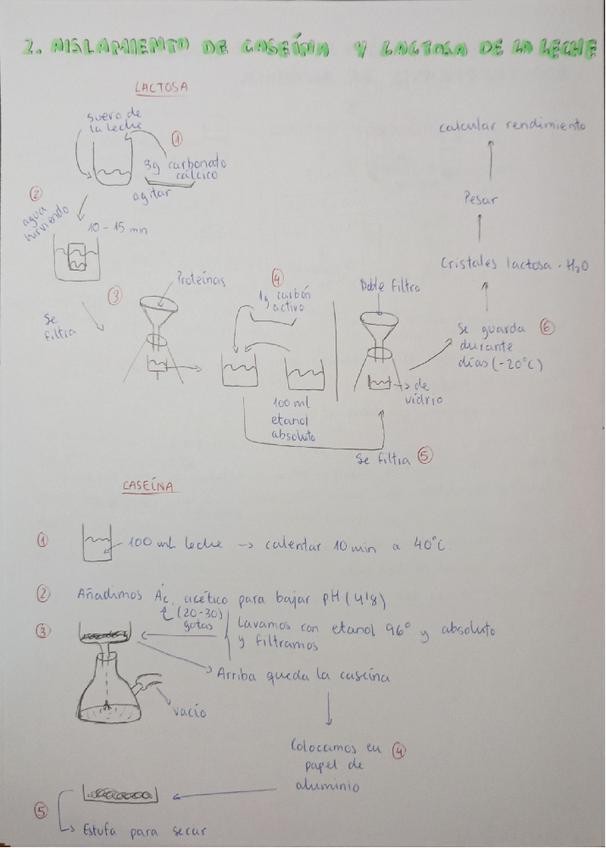 2. AISLAMIENTO DE CASEÍNA Y LACTOSA DE LA LECHE
LACTOSA
suero de
la leche
①
3g carbonato
cálcico
agitar
②
agua
hirviendo
10-15 min
Se
filtra
③
Proteínas
④
1g carbón
activo
100 ml
etanol
absoluto
Doble filtro
de
vidrio
Se filtra ⑤
Se guarda ⑥
durante
días (-20°C)
Cristales lactosa · H2O
Pesar
calcular rendimiento
CASEÍNA
① 100 mL leche → calentar 10 min a 40°C
② Añadimos Ác. acético para bajar pH (4'8)
(20-30)
gotas
③ Lavamos con etanol 96° y absoluto
y filtramos
Arriba queda la caseína
vacío
Colocamos en ④
papel de
aluminio
⑤
Estufa para secar